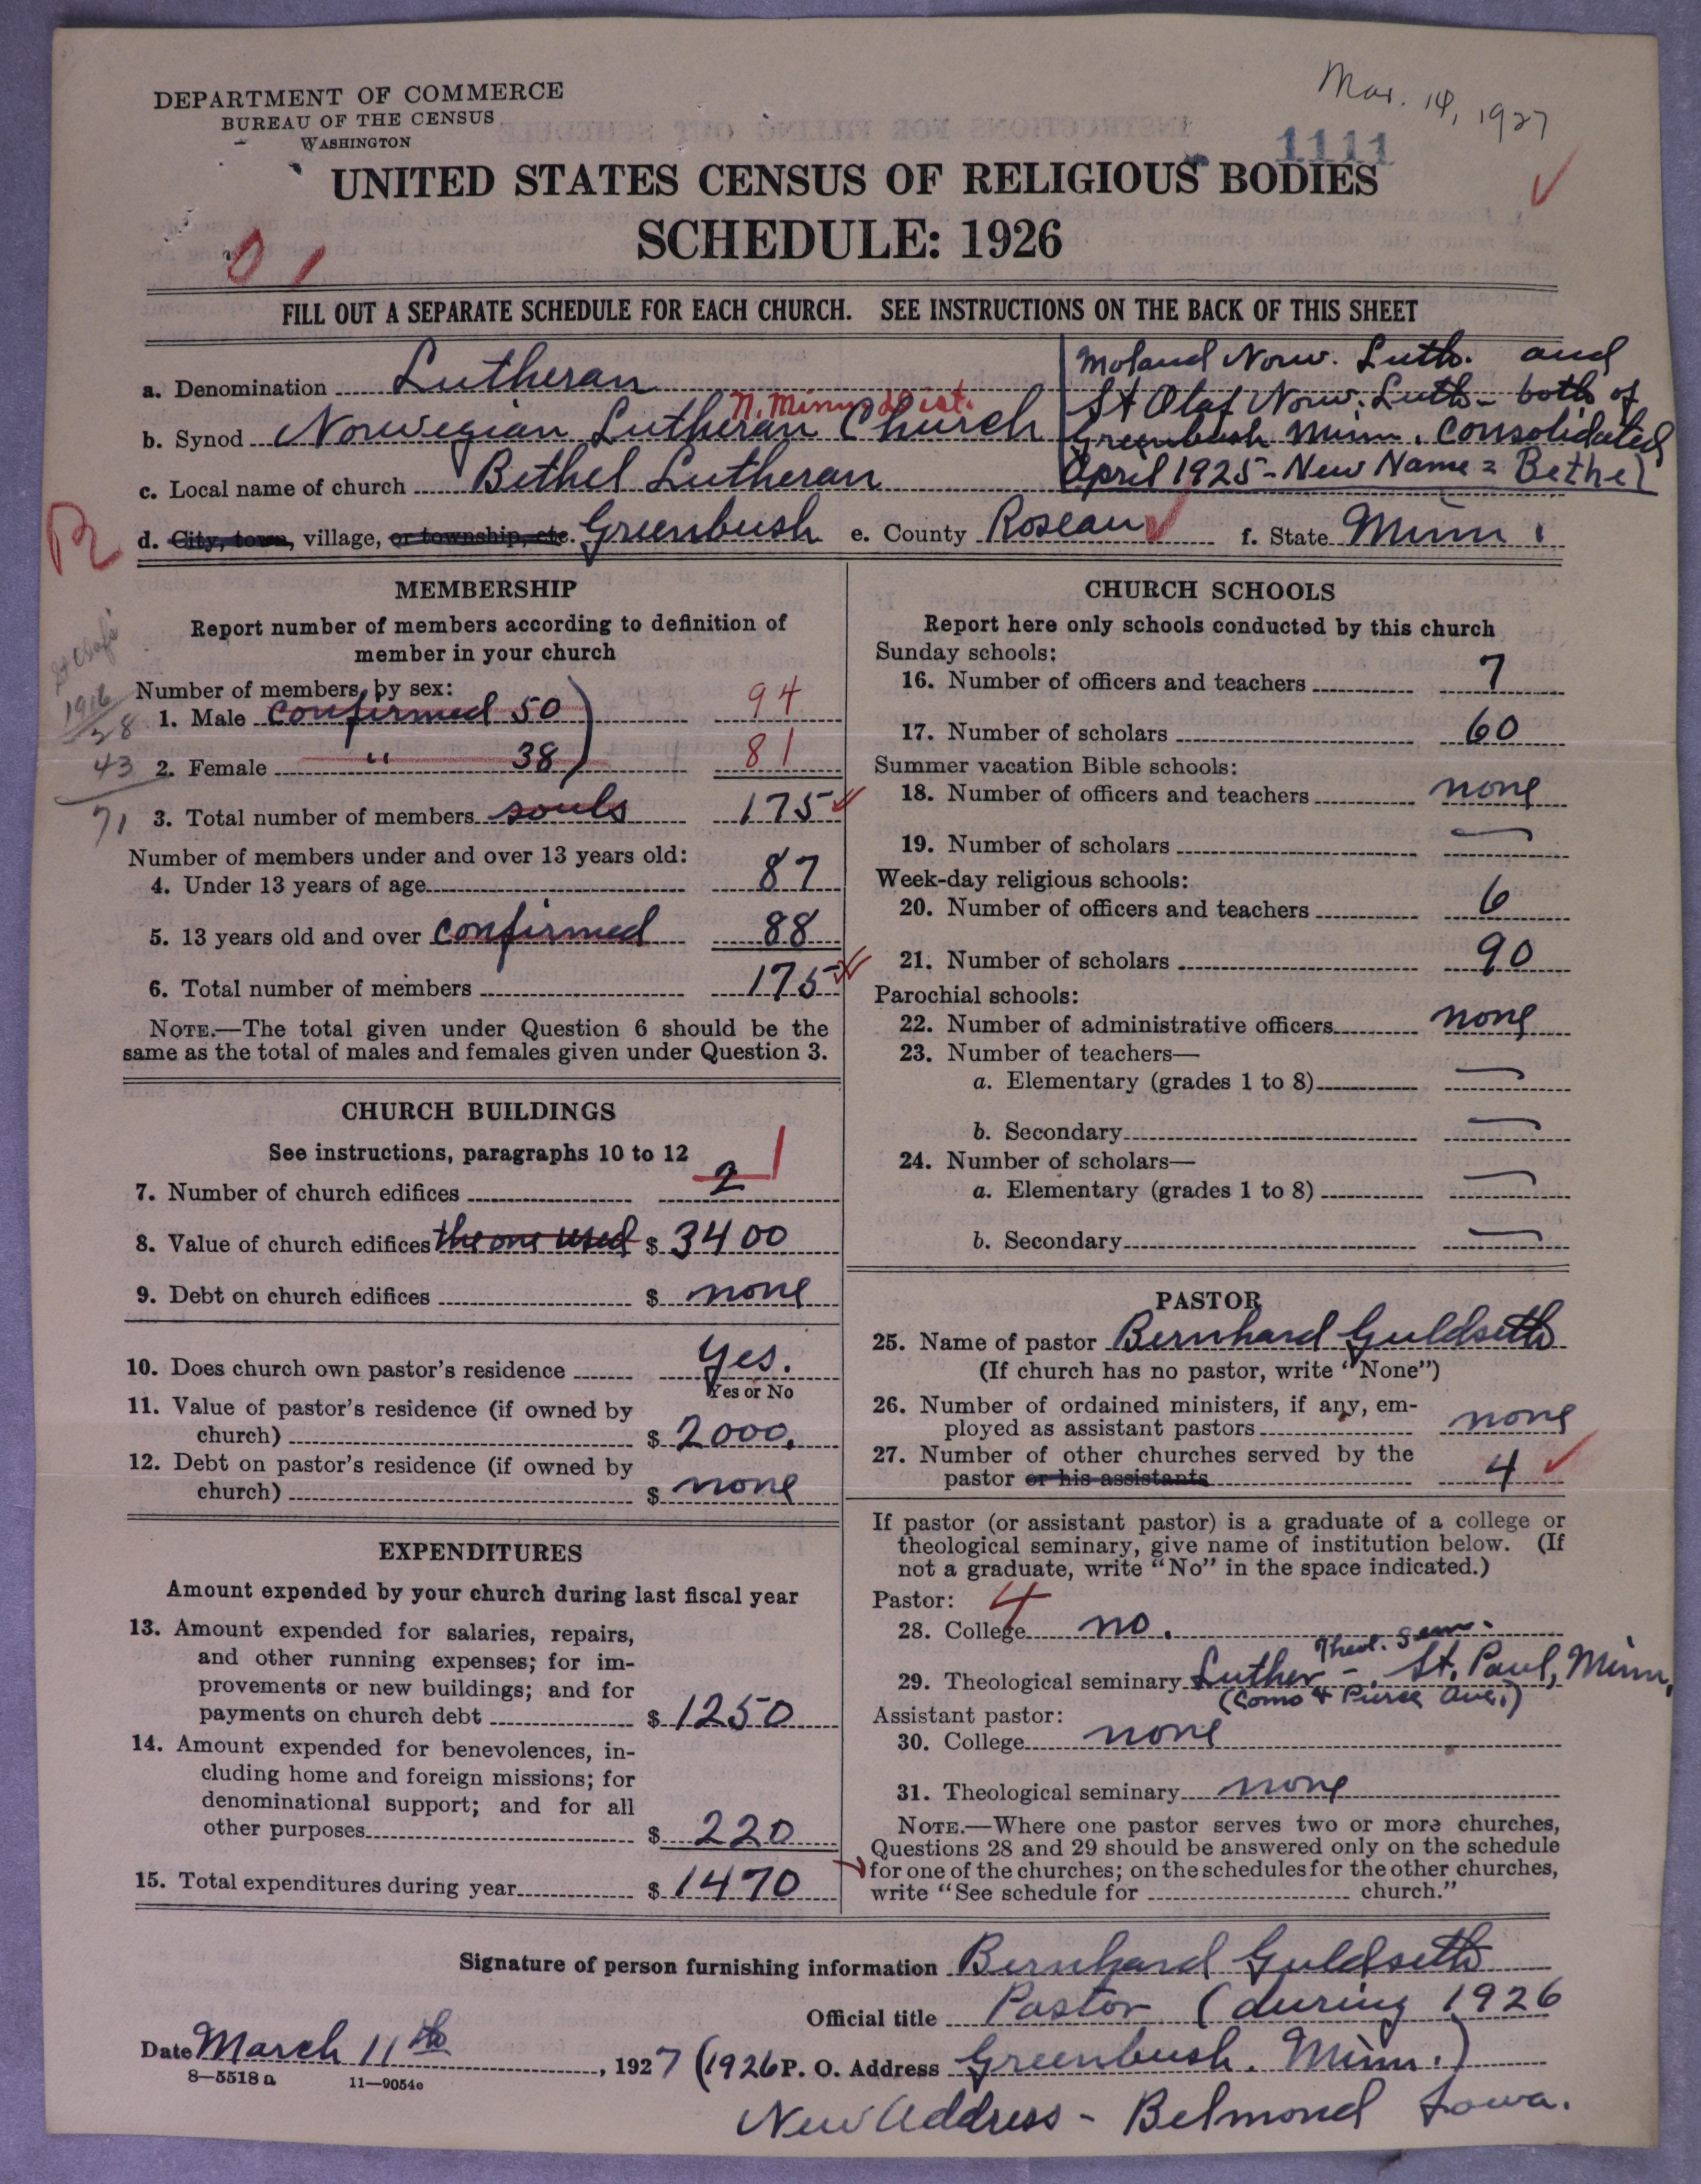 DEPARTMENT OF COMMERCE
BUREAU OF THE CENSUS
WASHINGTON
Mar. 14, 1927
1111
UNITED STATES CENSUS OF RELIGIOUS BODIES
SCHEDULE: 1926
0 1
FILL OUT A SEPARATE SCHEDULE FOR EACH CHURCH. SEE INSTRUCTIONS ON THE BACK OF THIS SHEET
a. Denomination Lutheran
N. Minn. Dist.
b. Synod Norwegian Lutheran Church
c. Local name of church Bethel Lutheran
Moland Norw. Luth. and
St Olaf Norw. Luth - both of
Greenbush Minn. consolidated
April 1925 - New Name = Bethel
R
d. City, town, village, or township, etc. Greenbush e. County Roseau f. State Minn.
MEMBERSHIP
Report number of members according to definition of
member in your church
St Olafs
1916
28
43
71
Number of members, by sex:
1. Male confirmed 50 94
2. Female " 38 81
3. Total number of members souls 175
Number of members under and over 13 years old:
4. Under 13 years of age 87
5. 13 years old and over confirmed 88
6. Total number of members 175
NOTE.—The total given under Question 6 should be the
same as the total of males and females given under Question 3.
CHURCH BUILDINGS
See instructions, paragraphs 10 to 12
7. Number of church edifices 2 1
8. Value of church edifices the one used $ 3400
9. Debt on church edifices $ none
10. Does church own pastor's residence Yes.
Yes or No
11. Value of pastor's residence (if owned by
church) $ 2000.
12. Debt on pastor's residence (if owned by
church) $ none
EXPENDITURES
Amount expended by your church during last fiscal year
13. Amount expended for salaries, repairs,
and other running expenses; for im-
provements or new buildings; and for
payments on church debt $ 1250
14. Amount expended for benevolences, in-
cluding home and foreign missions; for
denominational support; and for all
other purposes $ 220
15. Total expenditures during year $ 1470
CHURCH SCHOOLS
Report here only schools conducted by this church
Sunday schools:
16. Number of officers and teachers 7
17. Number of scholars 60
Summer vacation Bible schools:
18. Number of officers and teachers none
19. Number of scholars —
Week-day religious schools:
20. Number of officers and teachers 6
21. Number of scholars 90
Parochial schools:
22. Number of administrative officers none
23. Number of teachers—
a. Elementary (grades 1 to 8) —
b. Secondary —
24. Number of scholars—
a. Elementary (grades 1 to 8) —
b. Secondary —
PASTOR
25. Name of pastor Bernhard Guldseth
(If church has no pastor, write "None")
26. Number of ordained ministers, if any, em-
ployed as assistant pastors none
27. Number of other churches served by the
pastor or his assistants 4
If pastor (or assistant pastor) is a graduate of a college or
theological seminary, give name of institution below. (If
not a graduate, write "No" in the space indicated.)
Pastor: 4
28. College no.
Theol. Sem.
29. Theological seminary Luther - St. Paul, Minn.
(Como & Pierce Ave.)
Assistant pastor:
30. College none
31. Theological seminary none
NOTE.—Where one pastor serves two or more churches,
Questions 28 and 29 should be answered only on the schedule
for one of the churches; on the schedules for the other churches,
write "See schedule for church."
Signature of person furnishing information Bernhard Guldseth
Official title Pastor (during 1926
Date March 11th, 1927 (1926 P. O. Address Greenbush, Minn.)
8—5518 a 11—9054e
New Address - Belmond Iowa.